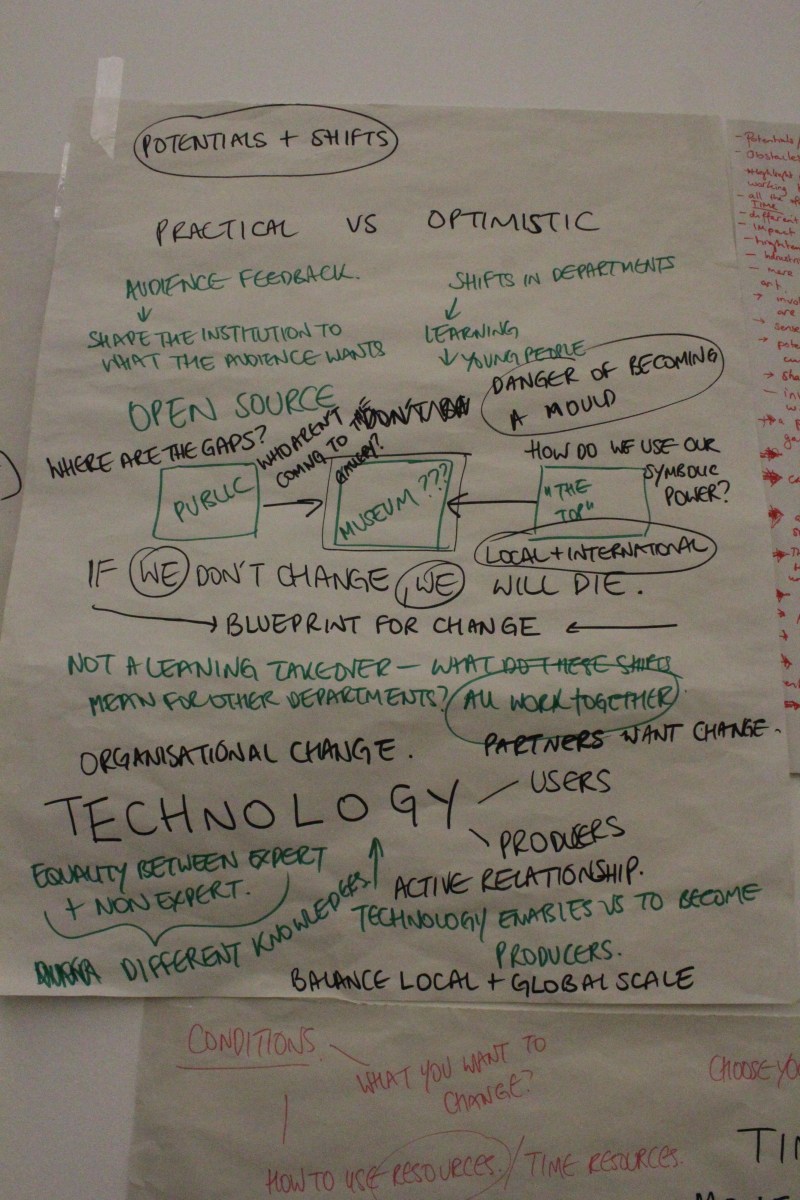 POTENTIALS + SHIFTS
PRACTICAL VS OPTIMISTIC
AUDIENCE FEEDBACK.
SHAPE THE INSTITUTION TO
WHAT THE AUDIENCE WANTS
SHIFTS IN DEPARTMENTS
LEARNING
YOUNG PEOPLE
DANGER OF BECOMING
A MOULD
OPEN SOURCE
WHERE ARE THE GAPS?
WHO AREN'T
COMING TO THE
GALLERY?
HOW DO WE USE OUR
SYMBOLIC
POWER?
PUBLIC
MUSEUM???
"THE
TOP"
LOCAL + INTERNATIONAL
IF WE DON'T CHANGE, WE WILL DIE.
BLUEPRINT FOR CHANGE
NOT A LEANING TAKEOVER – WHAT DO THESE SHIFTS
MEAN FOR OTHER DEPARTMENTS? ALL WORK TOGETHER
ORGANISATIONAL CHANGE.
PARTNERS WANT CHANGE.
TECHNOLOGY
USERS
PRODUCERS
EQUALITY BETWEEN EXPERT
+ NON EXPERT.
DIFFERENT KNOWLEDGES
ACTIVE RELATIONSHIP.
TECHNOLOGY ENABLES US TO BECOME
PRODUCERS.
BALANCE LOCAL + GLOBAL SCALE
- Potentials/
- Obstacles
Highlight
working
- all the
TIME
- different
- impact
CONDITIONS.
WHAT YOU WANT TO
CHANGE?
HOW TO USE RESOURCES. / TIME RESOURCES.
CHOOSE YO